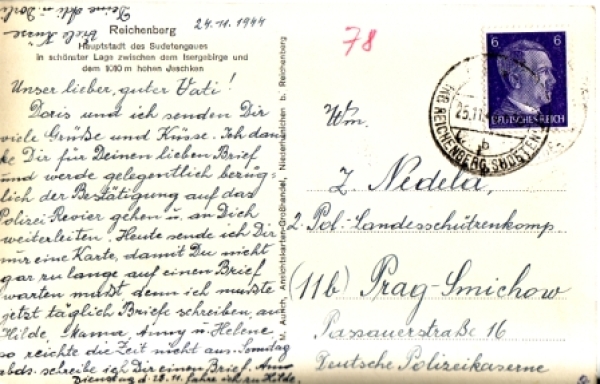 Deine Mti u. Dorli
Viele Küsse
24.11.1944
Reichenberg
Hauptstadt des Sudetengaues
in schönster Lage zwischen dem Isergebirge und
dem 1010 m hohen Jeschken
Unser lieber, guter Vati!
Doris und ich senden Dir
viele Grüße und Küsse. Ich dan
ke Dir für Deinen lieben Brief
und werde gelegentlich bezüg-
lich der Bestätigung auf das
Polizei-Revier gehen u. an Dich
weiterleiten. Heute sende ich Dir
nur eine Karte, damit Du nicht
gar zu lange auf einen Brief
warten mußt denn ich mußte
jetzt täglich Briefe schreiben, an
Hilde, Mama, Anny u. Helene,
so reichte die Zeit nicht aus. Sonntag
abds. schreibe ich Dir einen Brief.
Dienstag d. 28.11. fahre ich zu Hilde.
M. Aurich, Ansichtskarten-Großhandel, Niederhanichen b. Reichenberg
78
6 6
DEUTSCHES REICH
25.11
b
REICHENBERG, SUDETEN
Wm.
Z. Nedela,
2. Pol.-Landesschützenkomp.
(11b) Prag-Smichow
Passauerstraße 16
Deutsche Polizeikaserne